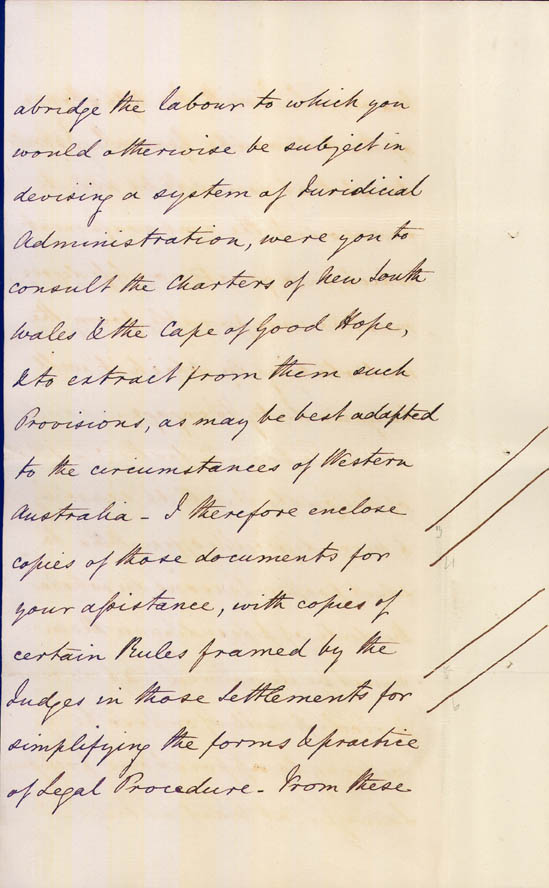 abridge the labour to which you
would otherwise be subject in
devising a system of Juridicial
Administration, were you to
consult the Charters of New South
Wales & the Cape of Good Hope,
& to extract from them such
Provisions, as may be best adapted
to the circumstances of Western
Australia - I therefore enclose
copies of those documents for
your assistance, with copies of
certain Rules framed by the
Judges in those Settlements for
simplifying the forms & practice
of Legal Procedure - From these
3
4
5
6